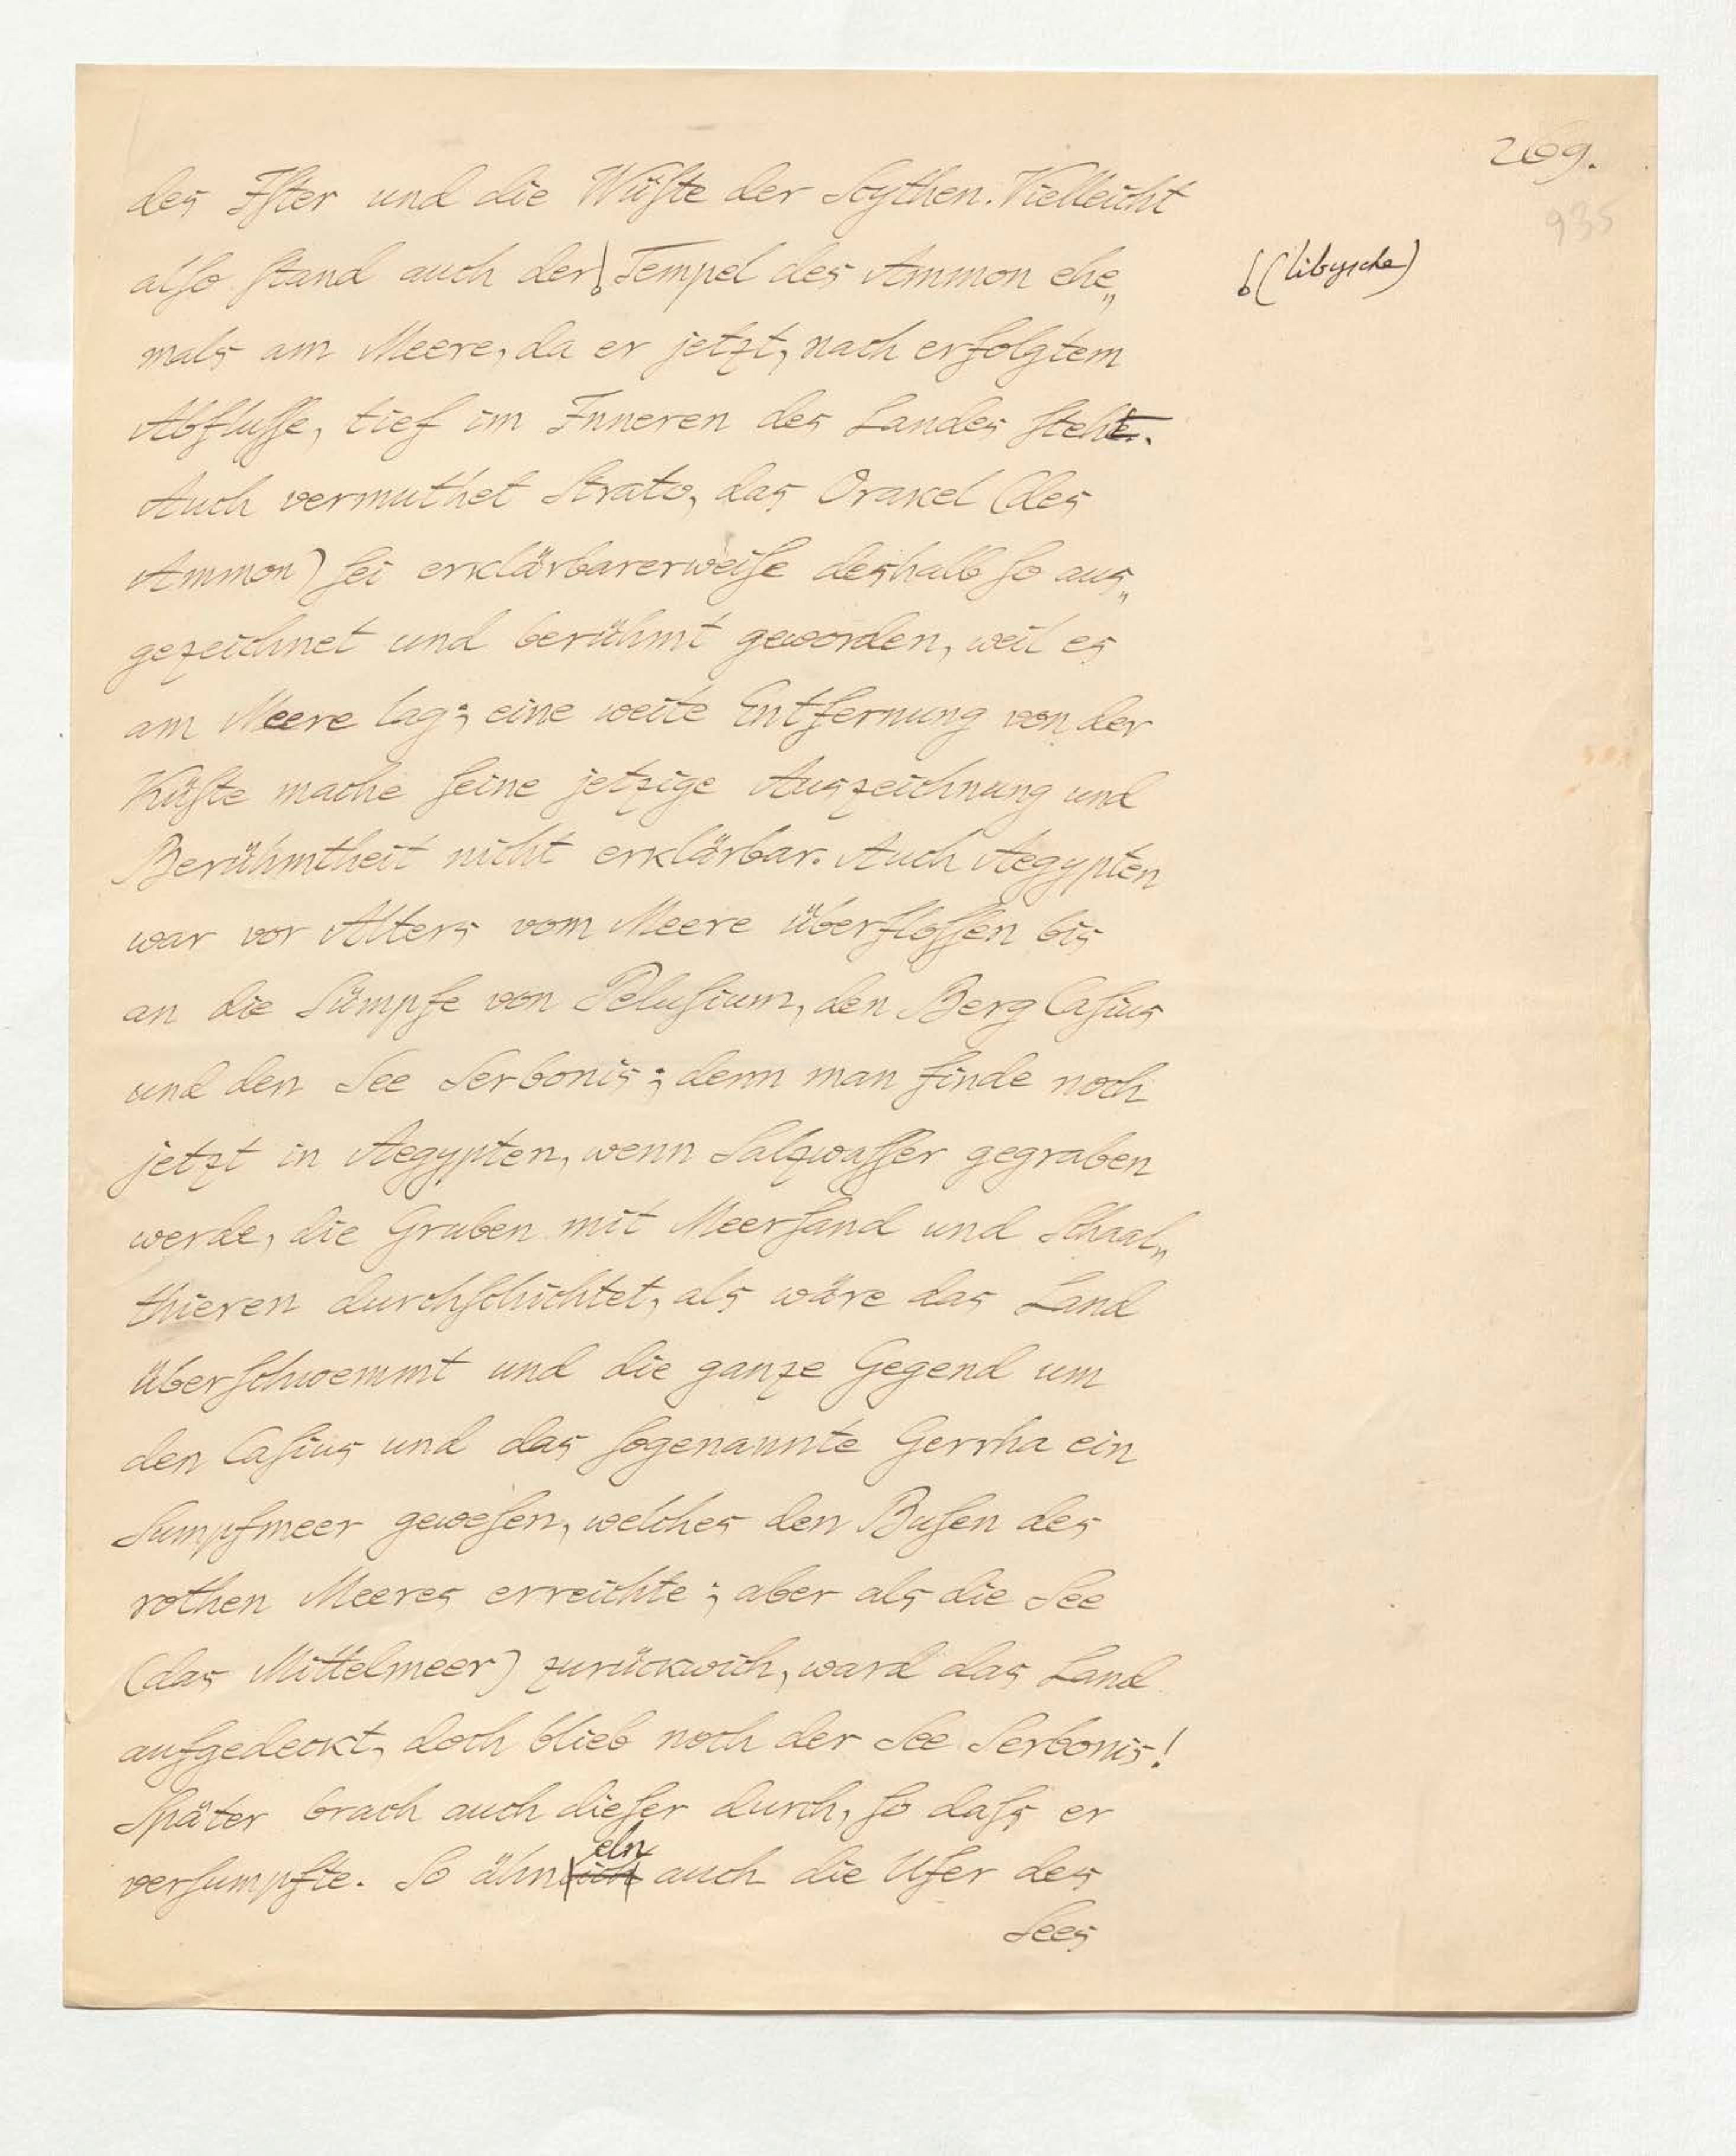 269.
935
des Iſter und die Wüſte der Scythen. Vielleicht
alſo ſtand auch der Tempel des Ammon ehe„
(libysche)
mals am Meere, da er jetzt, nach erfolgtem
Abfluſſe, tief im Inneren des Landes ſteht.
Auch vermuthet Strato, das Orakel (des
Ammon) ſei erklärbarerweiſe deshalb ſo aus„
gezeichnet und berühmt geworden, weil es
am Meere lag; eine weite Entfernung von der
Küſte mache ſeine jetzige Auszeichnung und
Berühmtheit nicht erklärbar. Auch Aegypten
war vor Alters vom Meere überfloſſen bis
an die Sümpfe von Peluſium, den Berg Caſius
und den See Serbonis; denn man finde noch
jetzt in Aegypten, wenn Salzwaſſer gegraben
werde, die Gruben mit Meerſand und Schaal„
thieren durchſchichtet, als wäre das Land
überſchwemmt und die ganze Gegend um
den Caſius und das ſogenannte Gerrha ein
Sumpfmeer geweſen, welches den Buſen des
rothen Meeres erreichte; aber als die See
(das Mittelmeer) zurückwich, ward das Land
aufgedeckt, doch blieb noch der See Serbonis!
Später brach auch dieſer durch, ſo daſs er
verſumpfte. So ähneln auch die Ufer des
Sees